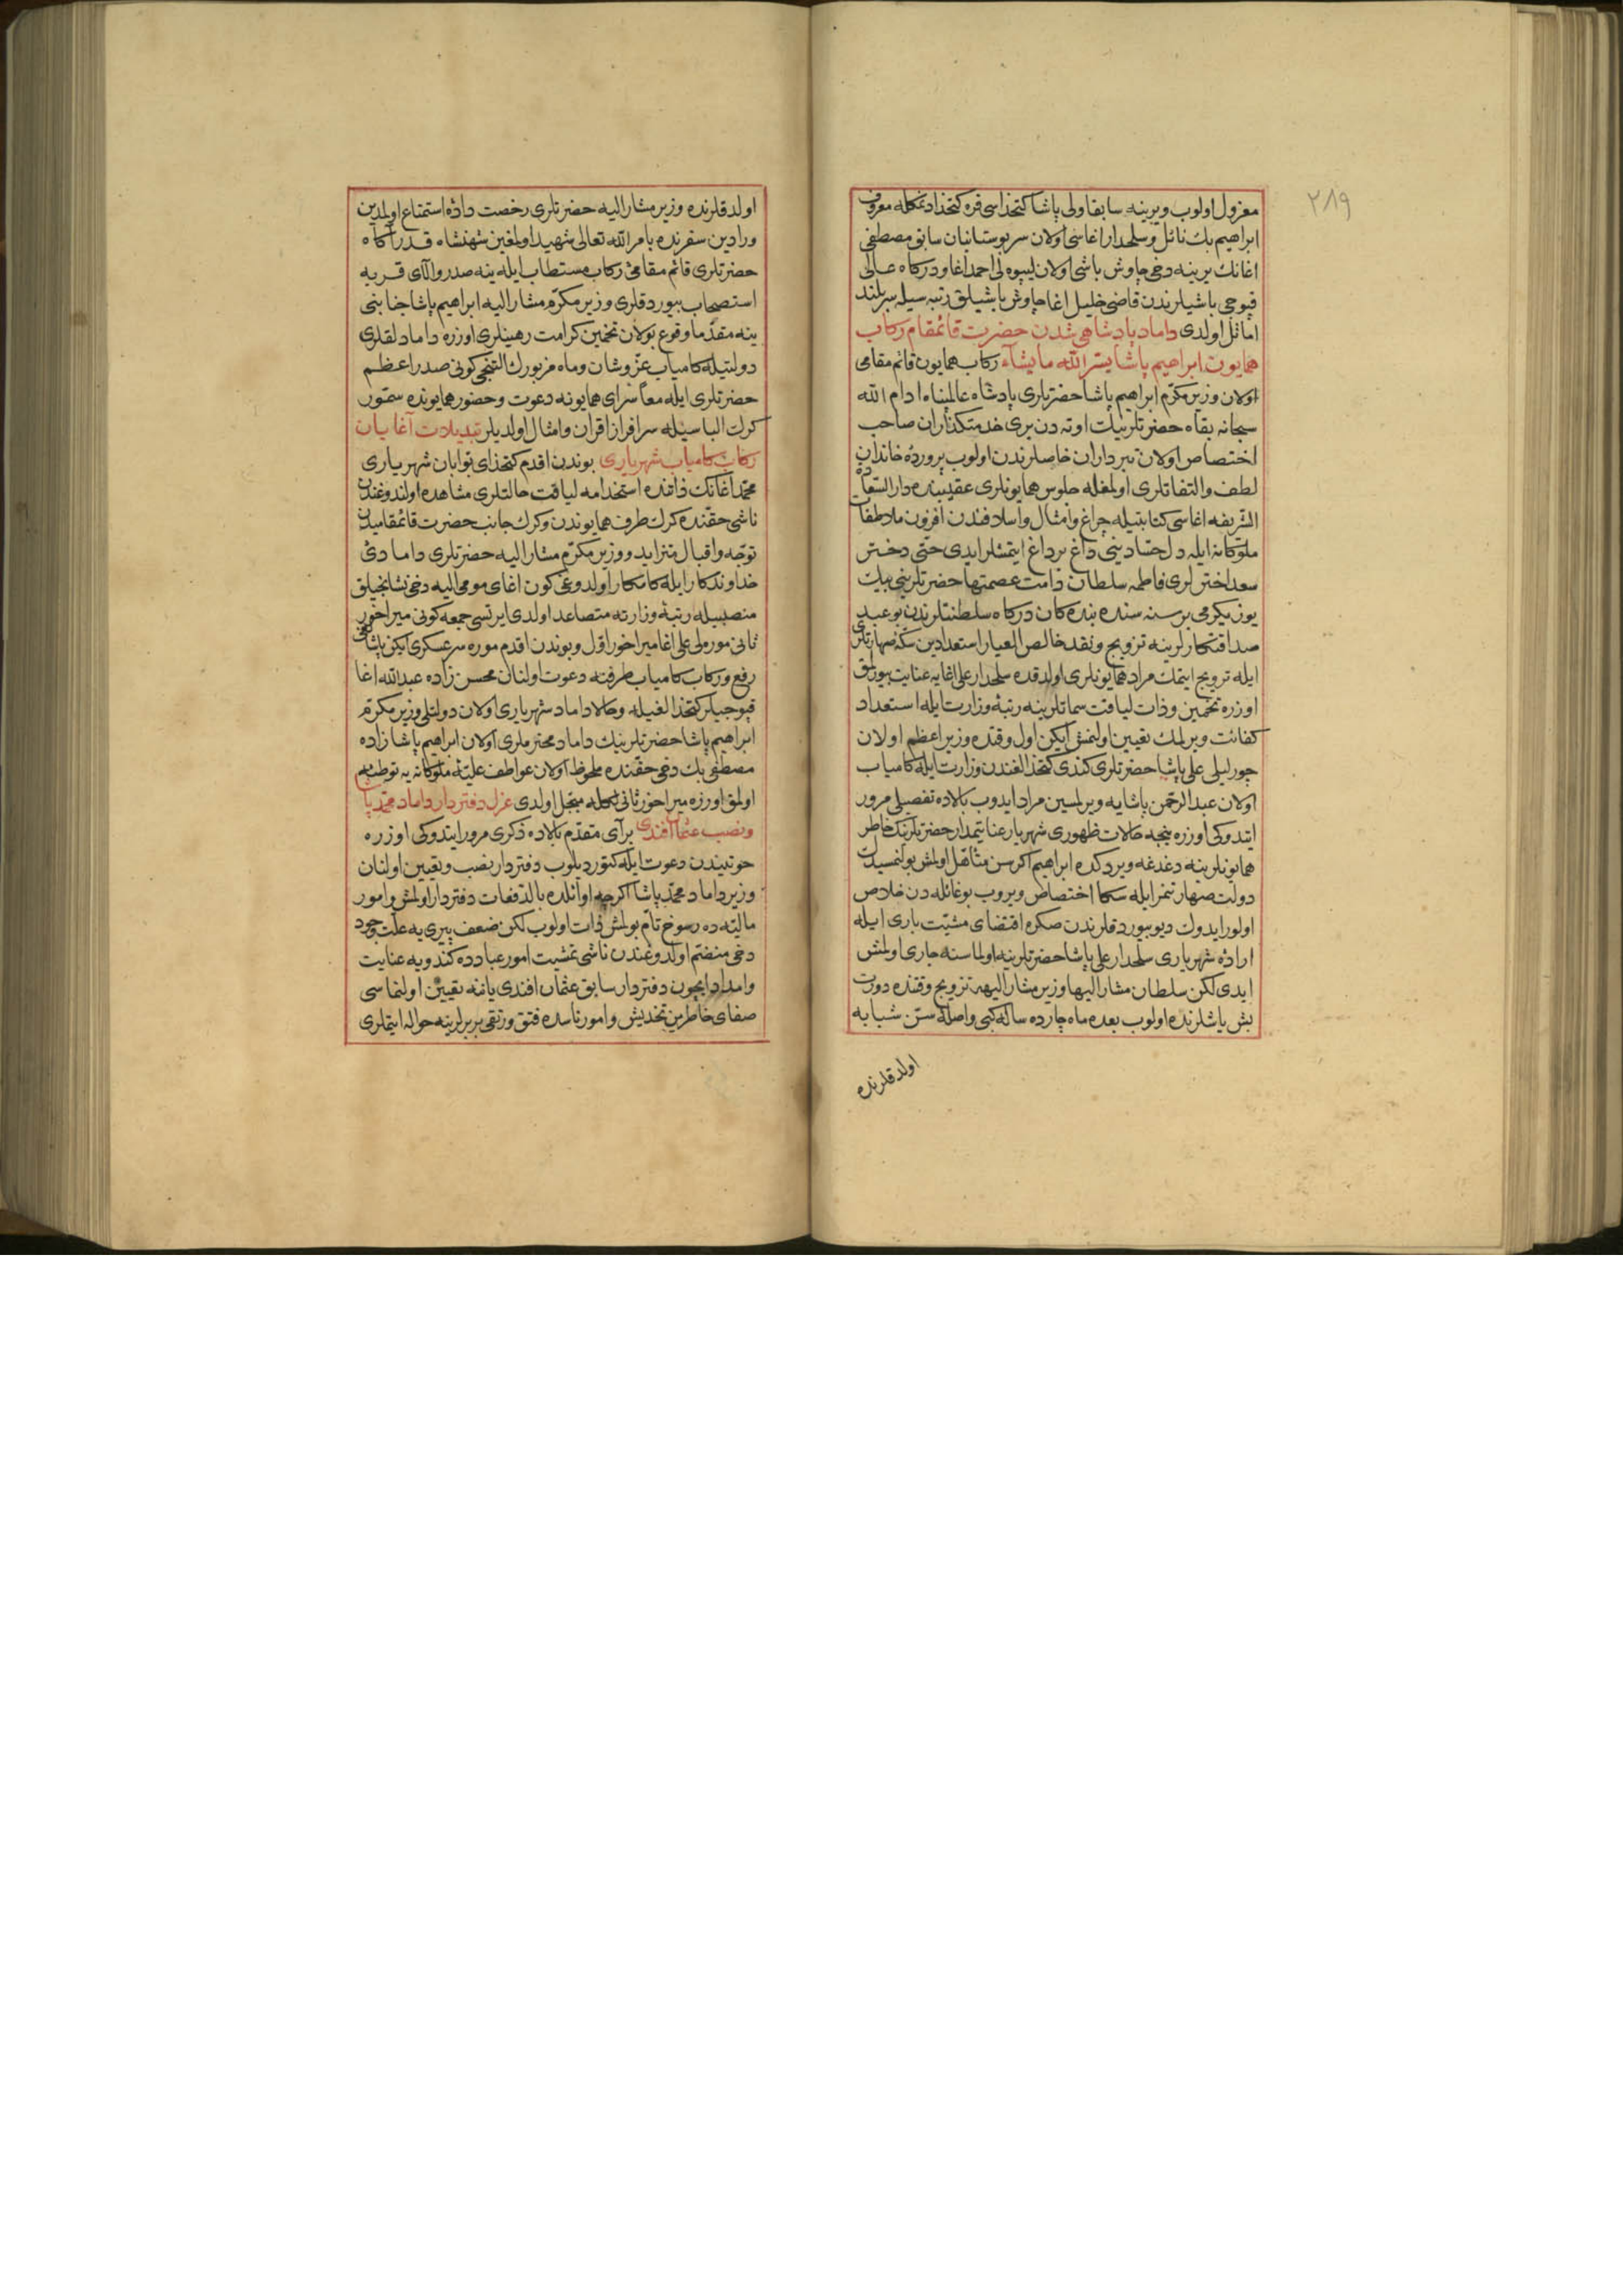 ٢٨٩
معزول اولوب ويرينه سابقا ولى پاشا كتخداسى قره كتخدا ديمكله معروف
ابراهيم بك نائل وسلحدار اغاسى اولان سربوستانيان سابق مصطفى
اغانك يرينه دخى چاوش باشى اولان ليپوه لى احمد اغا ودركاه عالى
قپوجى باشيلرندن قاضى خليل اغا چاوش باشيلق رتبه سيله سربلند
اماثل اولدى داماد پادشاهى شدن حضرت قائمقام ركاب
همايون ابراهيم پاشا يسر الله ما يشاء ركاب همايون قائم مقامى
اولان وزير مكرم ابراهيم پاشا حضرتلرى پادشاه عالمپناه ادام الله
سبحانه بقاه حضرتلرينك اوته دن برى خدمتكذاران صاحب
اختصاص اولان تبرداران خاصلرندن اولوب پرورده خاندان
لطف والتفاتلرى اولمغله جلوس همايونلرى عقيبنده دار السعاده
الشريفه اغاسى كتابتيله چراغ وامثال واسلافندن افزون ملاطفات
ملوكانه ايله دل حسادينى داغ بر داغ ايتمشلر ايدى حتى دختر
سعد اخترلرى فاطمه سلطان دامت عصمتها حضرتلرينى بيك
يوز يكرمى بر سنه سنده بندكان دركاه سلطنتلرندن بو عبد
صداقتكارلرينه تزويج ونقد خالص العيار استعدادين سكه صهارتلرى
ايله ترويج ايتمك مراد همايونلرى اولدقده سلحدار على اغايه عنايت بيورلمق
اوزره تخمين وذات لياقت سماتلرينه رتبه وزارت ايله استعداد
كفائت ويرلمك تعيين اولنمش ايكن اول وقتده وزير اعظم اولان
چورليلى على پاشا حضرتلرى كندى كتخدالغندن وزارت ايله كامياب
اولان عبد الرحمن پاشايه ويرلمسين مراد ايدوب بالاده تفصيلى مرور
ايتدوكى اوزره نيجه حالات ظهورى شهريار عنايتمدار حضرتلرينك خاطر
همايونلرينه دغدغه ويردكده ابراهيم اكر سن متاهل اولمش بولنمسيدك
دولت صهارتمز ايله سكا اختصاص ويروب بو غائله دن خلاص
اولور ايدوك ديو بيوردقلرندن صكره اقتضاى مشيت بارى ايله
اراده شهريارى سلحدار على پاشا حضرتلرينه اولماسنه جارى اولمش
ايدى لكن سلطان مشار اليها وزير مشار اليهه تزويج وقتنده دورت
بش ياشلرنده اولوب بعده ماه چارده ساله كبى واصله سن شبابه
اولدقلرنده
اولدقلرنده وزير مشار اليه حضرتلرى رخصت داده استمتاع اولمدين
ورادين سفرنده بامر الله تعالى شهيد اولمغين شهنشاه قدر آكاه
حضرتلرى قائم مقامئ ركاب مستطاب ايله ينه صدر والاى قربه
استصحاب بيوردقلرى وزير مكرم مشار اليه ابراهيم پاشا جنابنى
ينه مقدما وقوع بولان تخمين كرامت رهينلرى اوزره دامادلقلرى
دولتيله كامياب عز وشان وماه مزبورك التنجى كونى صدر اعظم
حضرتلرى ايله معا سراى همايونه دعوت وحضور همايونده سمور
كرك الباسيله سرافراز اقران وامثال اولديلر تبديلات آغايان
ركاب كامياب شهريارى بوندن اقدم كتخداى بوابان شهريارى
محمد اغانك ذاتنده استخدامه لياقت حالتلرى مشاهده اولندوغندن
ناشى حقنده كرك طرف همايوندن وكرك جانب حضرت قائمقاميدن
توجه واقبال متزايد ووزير مكرم مشار اليه حضرتلرى دامادئ
خداوندكار ايله كامكار اولدوغى كون اغاى مومى اليه دخى نشانجيلق
منصبيله رتبه وزارته متصاعد اولدى ايرتسى جمعه كونى ميراخور
ثانى موره لى على اغا ميراخور اول وبوندن اقدم موره سرعسكرى ايكن پاشالغى
رفع وركاب كامياب طرفنه دعوت اولنان محسن زاده عبد الله اغا
قپوجيلر كتخدالغيله وحالا داماد شهريارى اولان دولتلى وزير مكرم
ابراهيم پاشا حضرتلرينك داماد محترملرى اولان ابراهيم پاشا زاده
مصطفى بك دخى حقنده ملحوظ اولان عواطف عليه ملوكانه يه توطئه
اولمق اوزره ميراخور ثانى لكله مبجل اولدى عزل دفتردار داماد محمد پاشا
ونصب عثمان افندى برآى مقدم بالاده ذكرى مرور ايتدوكى اوزره
خوتيندن دعوت ايله كتورديلوب دفتردار نصب وتعيين اولنان
وزير داماد محمد پاشا اكرچه اوائلده بالدفعات دفتردار اولمش وامور
ماليه ده رسوخ تام بولمش ذات اولوب لكن ضعف پيرى يه علت وجود
دخى منضم اولدوغندن ناشى تمشيت امور عبادده كندويه عنايت
وامداد ايچون دفتردار سابق عثمان افندى يانه تعيين اولنماسى
صفاى خاطرين تخديش وامور ناسده فتق ورتقى بربرلرينه حواله ايتملرى